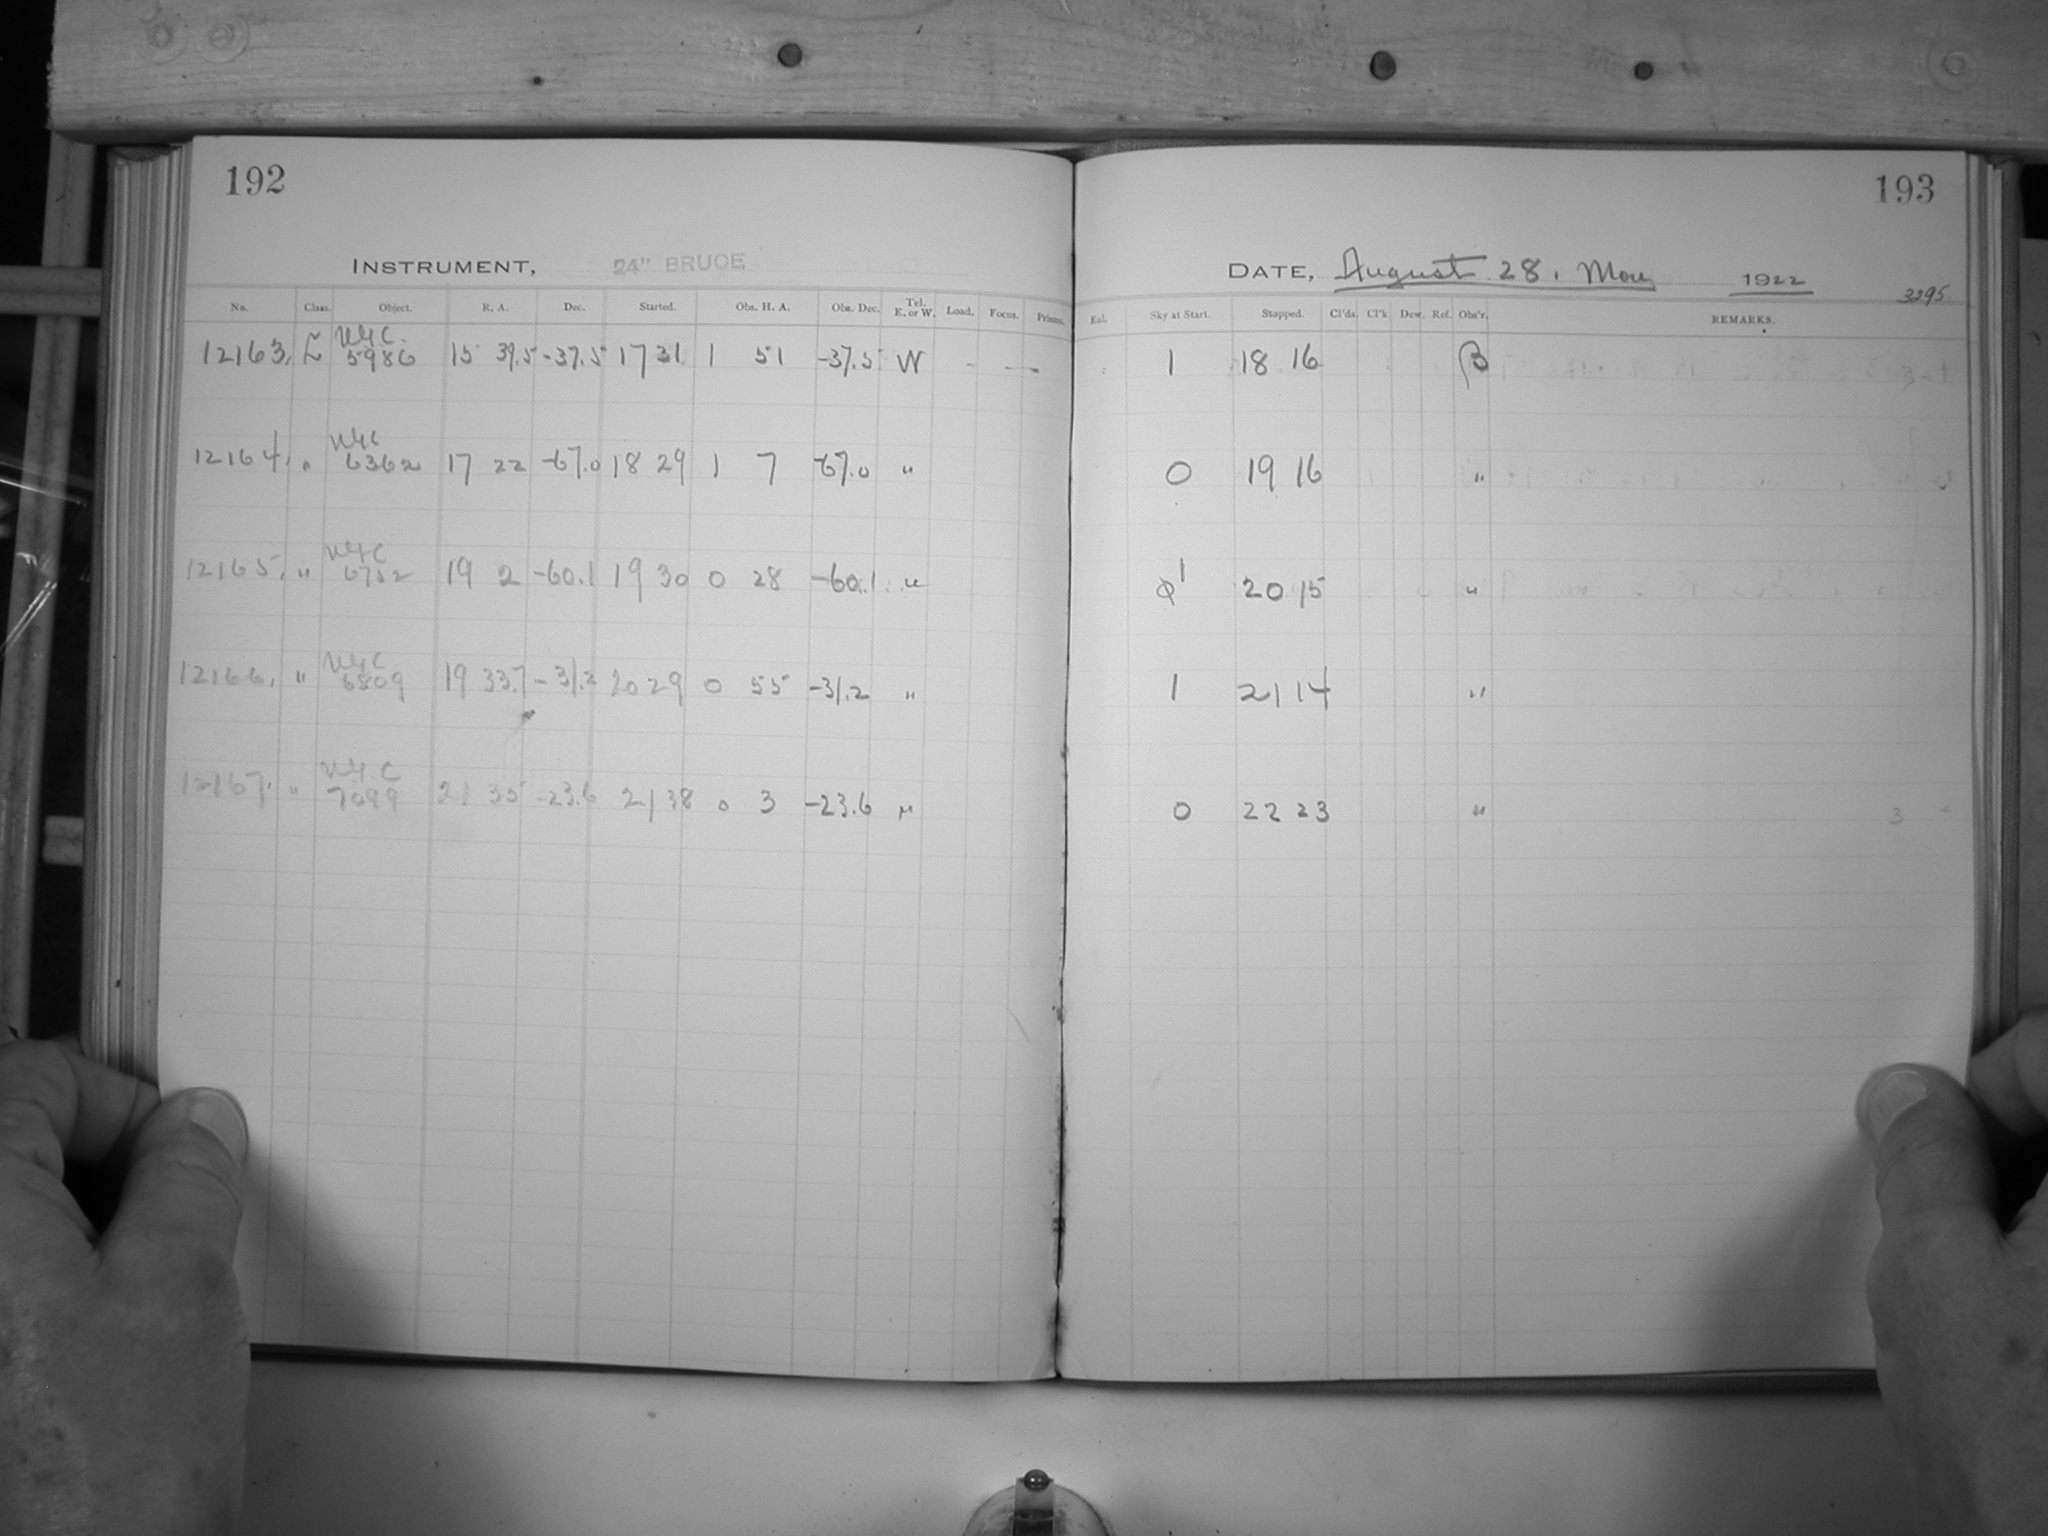 192
INSTRUMENT, 24" BRUCE
No. Class. Object. R. A. Dec. Started. Obs. H. A. Obs. Dec. Tel. E. or W. Load. Focus. Prisms.
12163, L N.G.C. 5986 15 39.5 -37.5 17 31 1 51 -37.5 W - —
12164, " NGC 6362 17 22 -67.0 18 29 1 7 -67.0 "
12165, " NGC 6752 19 2 -60.1 19 30 0 28 -60.1 "
12166, " NGC 6809 19 33.7 -31.2 20 29 0 55 -31.2 "
12167, " N.G.C 7099 21 35 -23.6 21 38 0 3 -23.6 "
193
DATE, August 28, Mon 1922
3295
Eal. Sky at Start. Stopped. Cl'ds. Cl'k Dew. Ref. Obs'r. REMARKS.
1 18 16 B
0 19 16 "
1 20 15 "
1 21 14 "
0 22 23 "